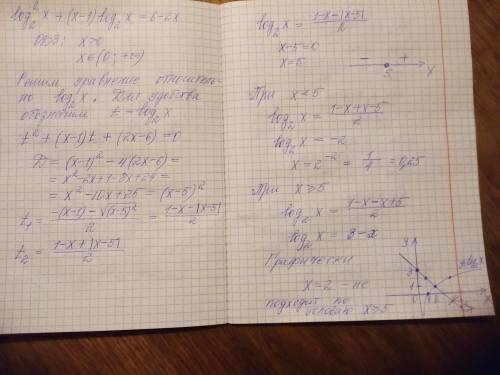 log₂²x + (x-1)log₂x = 6-2x
ОДЗ: x>0
x∈(0; +∞)
Решим уравнение относитель-
но log₂x. Для удобства
обозначим t = log₂x
t² + (x-1)t + (2x-6) = 0
D = (x-1)² - 4(2x-6) =
= x² - 2x + 1 - 8x + 24 =
= x² - 10x + 25 = (x-5)²
t₁ = (-(x-1) - √(x-5)²)/2 = (1-x-|x-5|)/2
t₂ = (1-x+|x-5|)/2
log₂x = (1-x-|x-5|)/2
x-5=0
x=5
- + 5 x
При x<5
log₂x = (1-x+x-5)/2
log₂x = -2
x = 2⁻² = 1/4 = 0,25
При x≥5
log₂x = (1-x-x+5)/2
log₂x = 3-x
Графически
x=2 - не
подходит по
условию x≥5
y
3
1
0
x